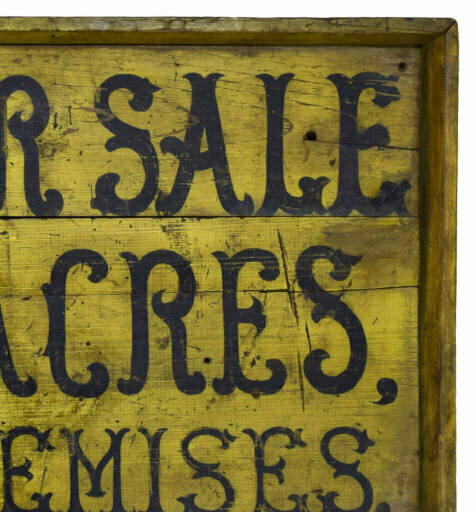 R SALE
ACRES,
EMISES.